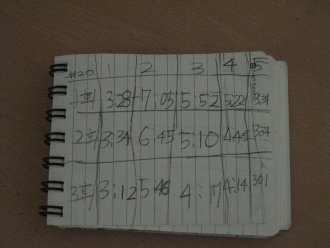 #20 1 2 3 4 5
1회 3:28 7:05 5:52 5:22 3:31
2회 3:34 6:45 5:10 4:44
3회 3:12 5:46 4:17 4:14 3:01